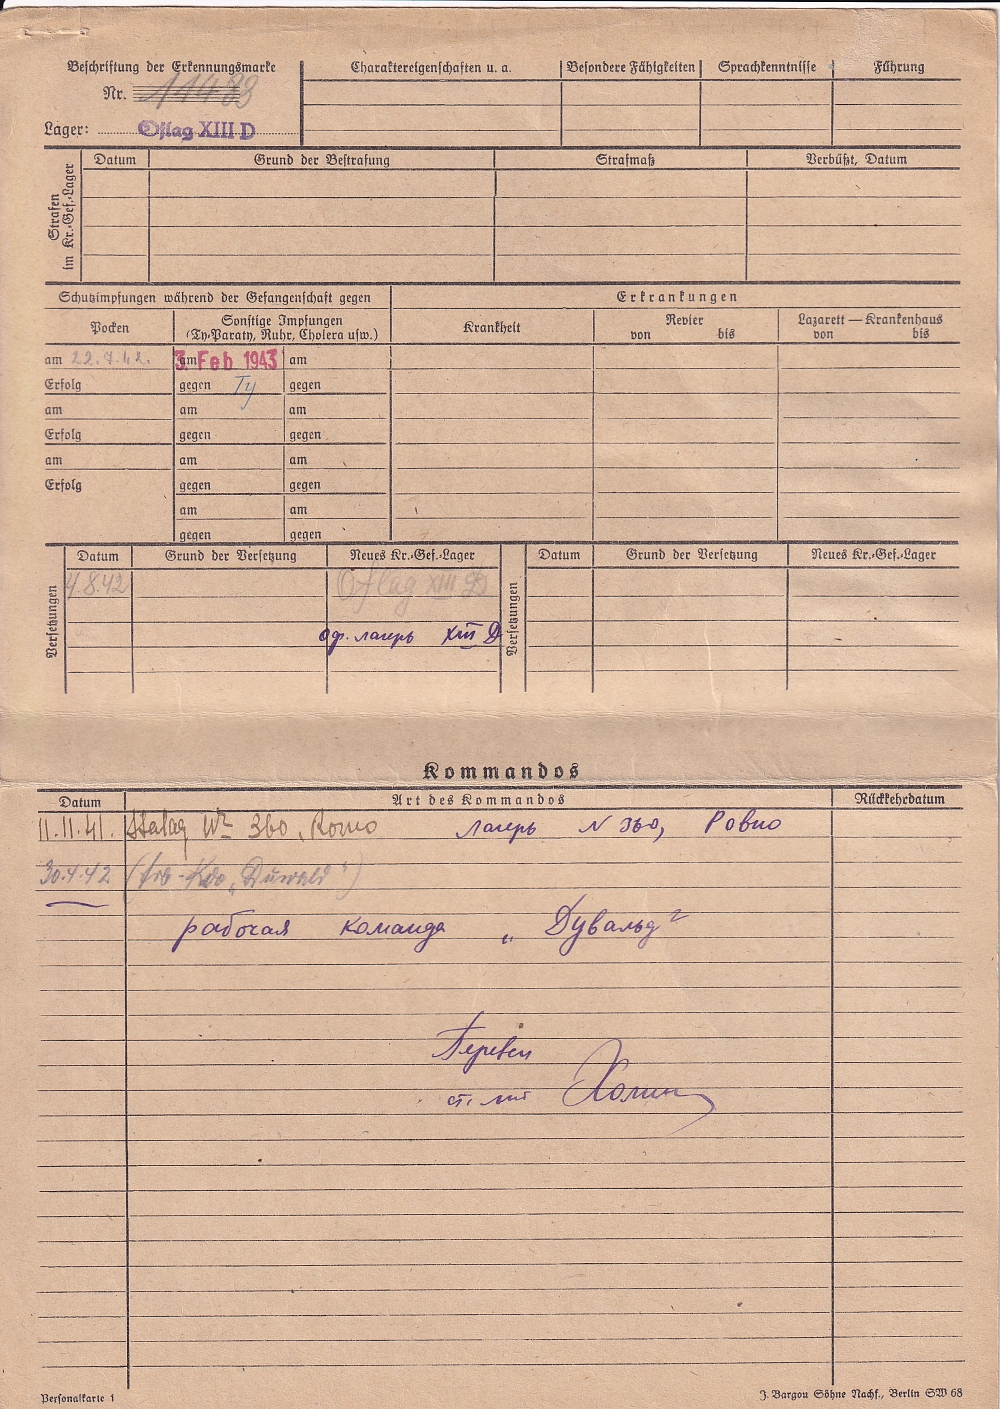 Beschriftung der Erkennungsmarke
Nr. 11483
Lager: Oflag XIII D
Charaktereigenschaften u. a.
Besondere Fähigkeiten
Sprachkenntnisse
Führung
Strafen im Kr.-Gef.-Lager
Datum
Grund der Bestrafung
Strafmaß
Verbüßt, Datum
Schutzimpfungen während der Gefangenschaft gegen
Erkrankungen
Pocken
Sonstige Impfungen
(Ty-Paraty, Ruhr, Cholera usw.)
Krankheit
Revier
von bis
Lazarett — Krankenhaus
von bis
am 22.7.42. am 3. Feb 1943 am
Erfolg gegen Ty gegen
am am am
Erfolg gegen gegen
am am am
Erfolg gegen gegen
am am
gegen gegen
Versetzungen
Datum Grund der Versetzung Neues Kr.-Gef.-Lager
Versetzungen
Datum Grund der Versetzung Neues Kr.-Gef.-Lager
4.8.42 Oflag XIII D
оф. лагерь XIII D
Kommandos
Datum Art des Kommandos Rückkehrdatum
11.11.41. Stalag № 360, Rowno лагерь N 360, Ровно
30.4.42 (Arb-Kdo „Duwald“)
рабочая команда „Дувальд"
Перевел
ст. л-т Холин
Personalkarte 1
J. Bargou Söhne Nachf., Berlin SW 68